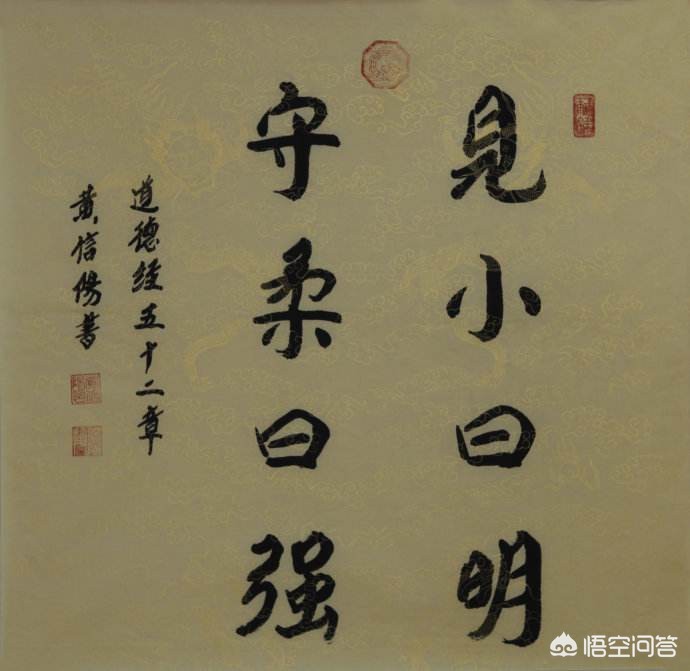 見小曰明
守柔曰强
道德經五十二章
黄信陽書
悟空问答